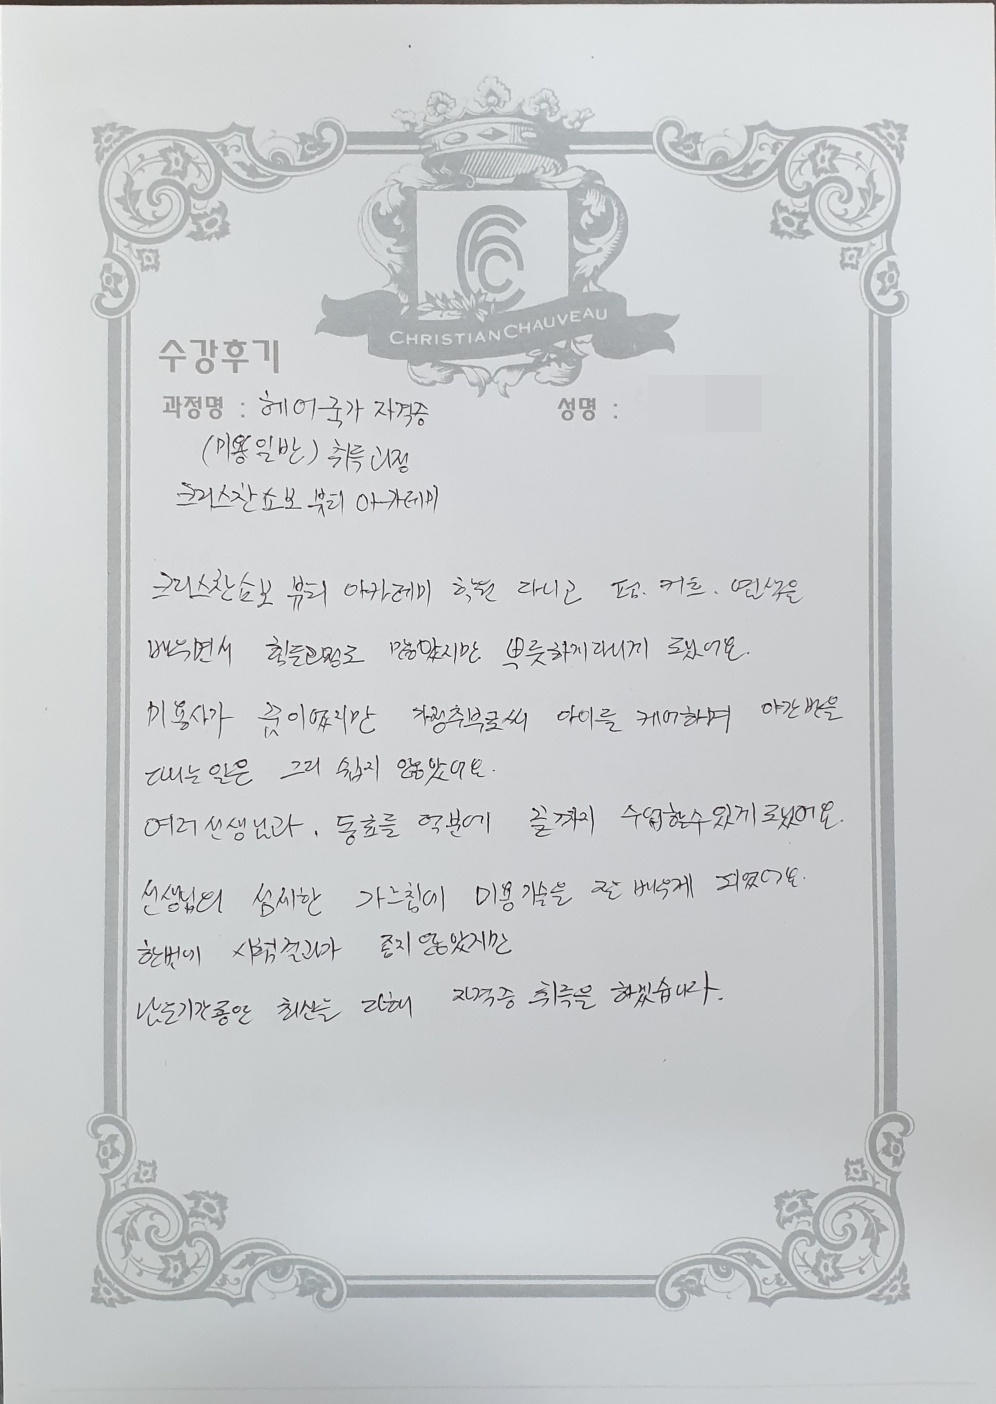 CHRISTIAN CHAUVEAU
수강후기
과정명 : 헤어국가 자격증 성명 :
(미용일반) 취득과정
크리스찬쇼보 뷰티 아카데미
크리스찬쇼보 뷰티 아카데미 학원 다니고 펌. 커트. 염색을
배우면서 힘든점도 많았지만 뿌듯하게 다니게 됐어요.
미용사가 꿈이였지만 가정주부로써 아이를 케어하며 야간반을
다니는 일은 그리 쉽지 않았어요.
여러 선생님과, 동료들 덕분에 끝까지 수업할수 있게 됐어요.
선생님의 섬세한 가르침에 미용기술을 잘 배우게 되었어요.
한번에 시험결과가 좋지 않았지만
남은기간동안 최선을 다해 자격증 취득을 하겠습니다.